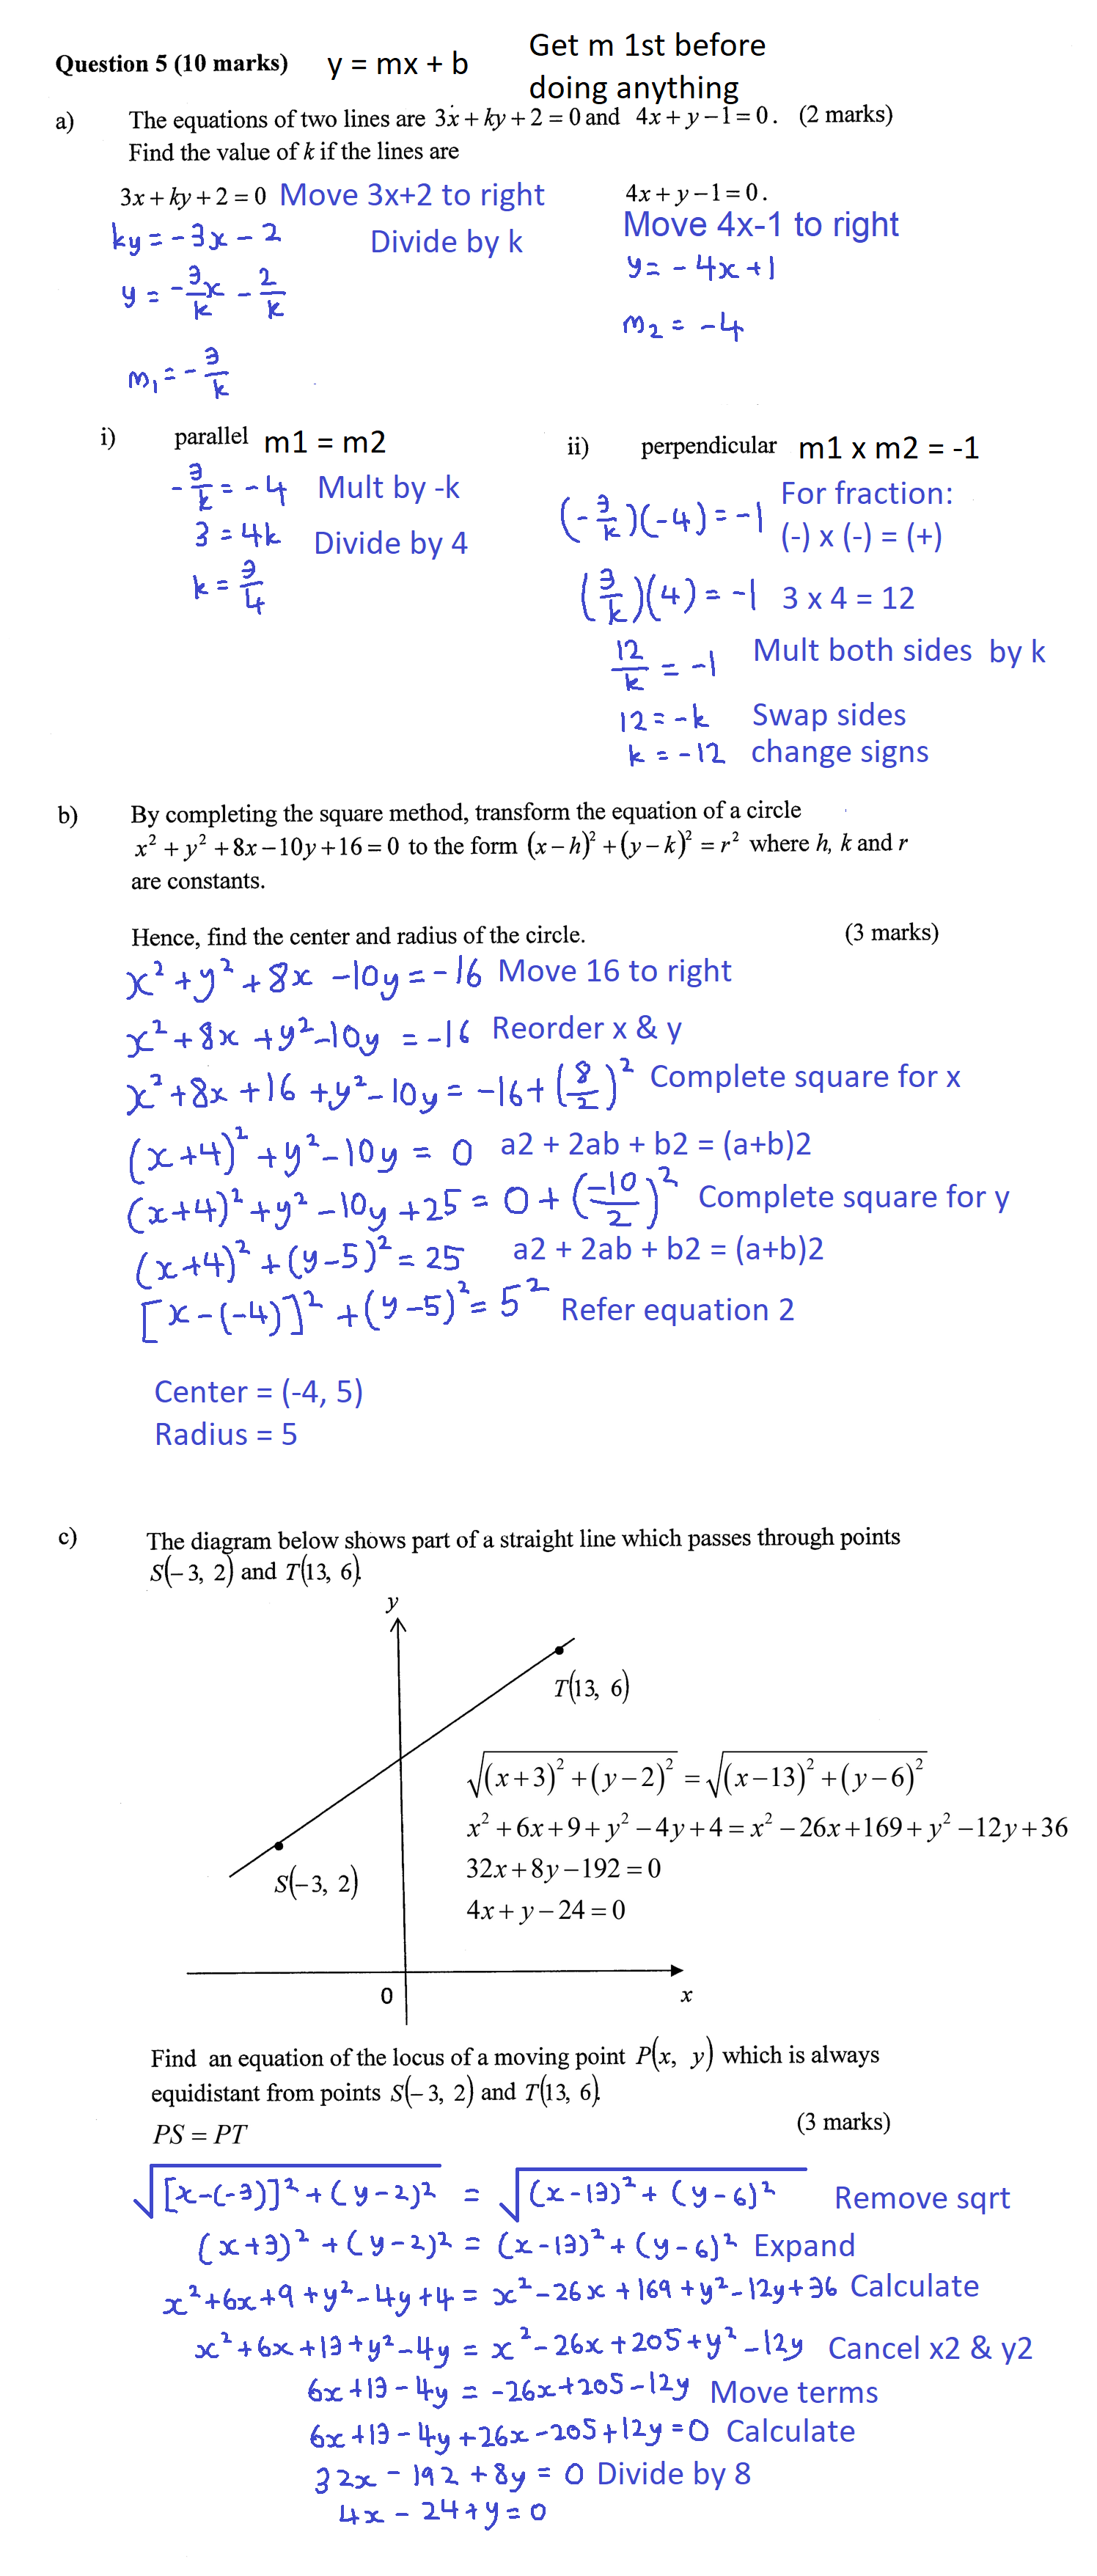 Question 5 (10 marks) y = mx + b Get m 1st before
doing anything
a) The equations of two lines are 3x + ky + 2 = 0 and 4x + y − 1 = 0. (2 marks)
Find the value of k if the lines are
3x + ky + 2 = 0 Move 3x+2 to right
ky = −3x − 2 Divide by k
y = −3/k x − 2/k
m₁ = −3/k
4x + y − 1 = 0.
Move 4x-1 to right
y = −4x + 1
m₂ = −4
i) parallel m1 = m2
−3/k = −4 Mult by -k
3 = 4k Divide by 4
k = 3/4
ii) perpendicular m1 x m2 = -1
(−3/k)(−4) = −1 For fraction:
(-) x (-) = (+)
(3/k)(4) = −1 3 x 4 = 12
12/k = −1 Mult both sides by k
12 = −k Swap sides
k = −12 change signs
b) By completing the square method, transform the equation of a circle
x² + y² + 8x − 10y + 16 = 0 to the form (x − h)² + (y − k)² = r² where h, k and r
are constants.
Hence, find the center and radius of the circle. (3 marks)
x² + y² + 8x − 10y = −16 Move 16 to right
x² + 8x + y² − 10y = −16 Reorder x & y
x² + 8x + 16 + y² − 10y = −16 + (8/2)² Complete square for x
(x + 4)² + y² − 10y = 0 a2 + 2ab + b2 = (a+b)2
(x + 4)² + y² − 10y + 25 = 0 + (−10/2)² Complete square for y
(x + 4)² + (y − 5)² = 25 a2 + 2ab + b2 = (a+b)2
[x − (−4)]² + (y − 5)² = 5² Refer equation 2
Center = (-4, 5)
Radius = 5
c) The diagram below shows part of a straight line which passes through points
S(−3, 2) and T(13, 6).
y
T(13, 6)
√((x+3)² + (y−2)²) = √((x−13)² + (y−6)²)
x² + 6x + 9 + y² − 4y + 4 = x² − 26x + 169 + y² − 12y + 36
32x + 8y − 192 = 0
4x + y − 24 = 0
S(−3, 2)
0 x
Find an equation of the locus of a moving point P(x, y) which is always
equidistant from points S(−3, 2) and T(13, 6).
(3 marks)
PS = PT
√([x−(−3)]² + (y−2)²) = √((x−13)² + (y−6)²) Remove sqrt
(x+3)² + (y−2)² = (x−13)² + (y−6)² Expand
x² + 6x + 9 + y² − 4y + 4 = x² − 26x + 169 + y² − 12y + 36 Calculate
x² + 6x + 13 + y² − 4y = x² − 26x + 205 + y² − 12y Cancel x2 & y2
6x + 13 − 4y = −26x + 205 − 12y Move terms
6x + 13 − 4y + 26x − 205 + 12y = 0 Calculate
32x − 192 + 8y = 0 Divide by 8
4x − 24 + y = 0